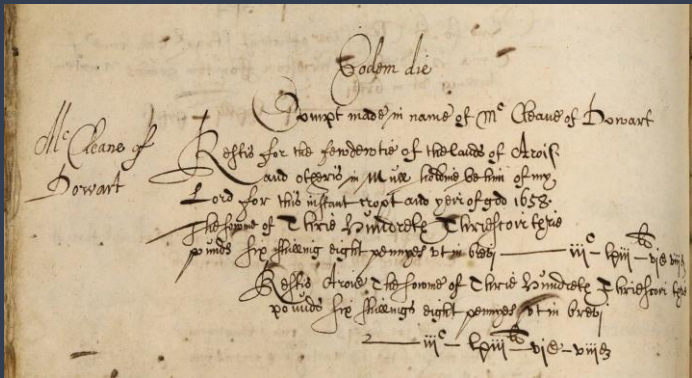 Eodem die
Compt made in name of Mc Cleane of Dowart
Mc Cleane of
Dowart
Restis for the fewdewtie of the lands of Arois
and otheris in Mull holdine be him of my
Lord for this instant cropt and yeir of god 1658
The sowme of Thrie Hundreth Thriescoir thrie
punds six shilling eight pennyes vt in brevi iiic lxiii lb vis viiid
Restis Arois The sowme of Thrie Hundreth Thriescoir thrie
pounds six shillings eight pennyes vt in brevi
iiic lxiii lb vis viiid